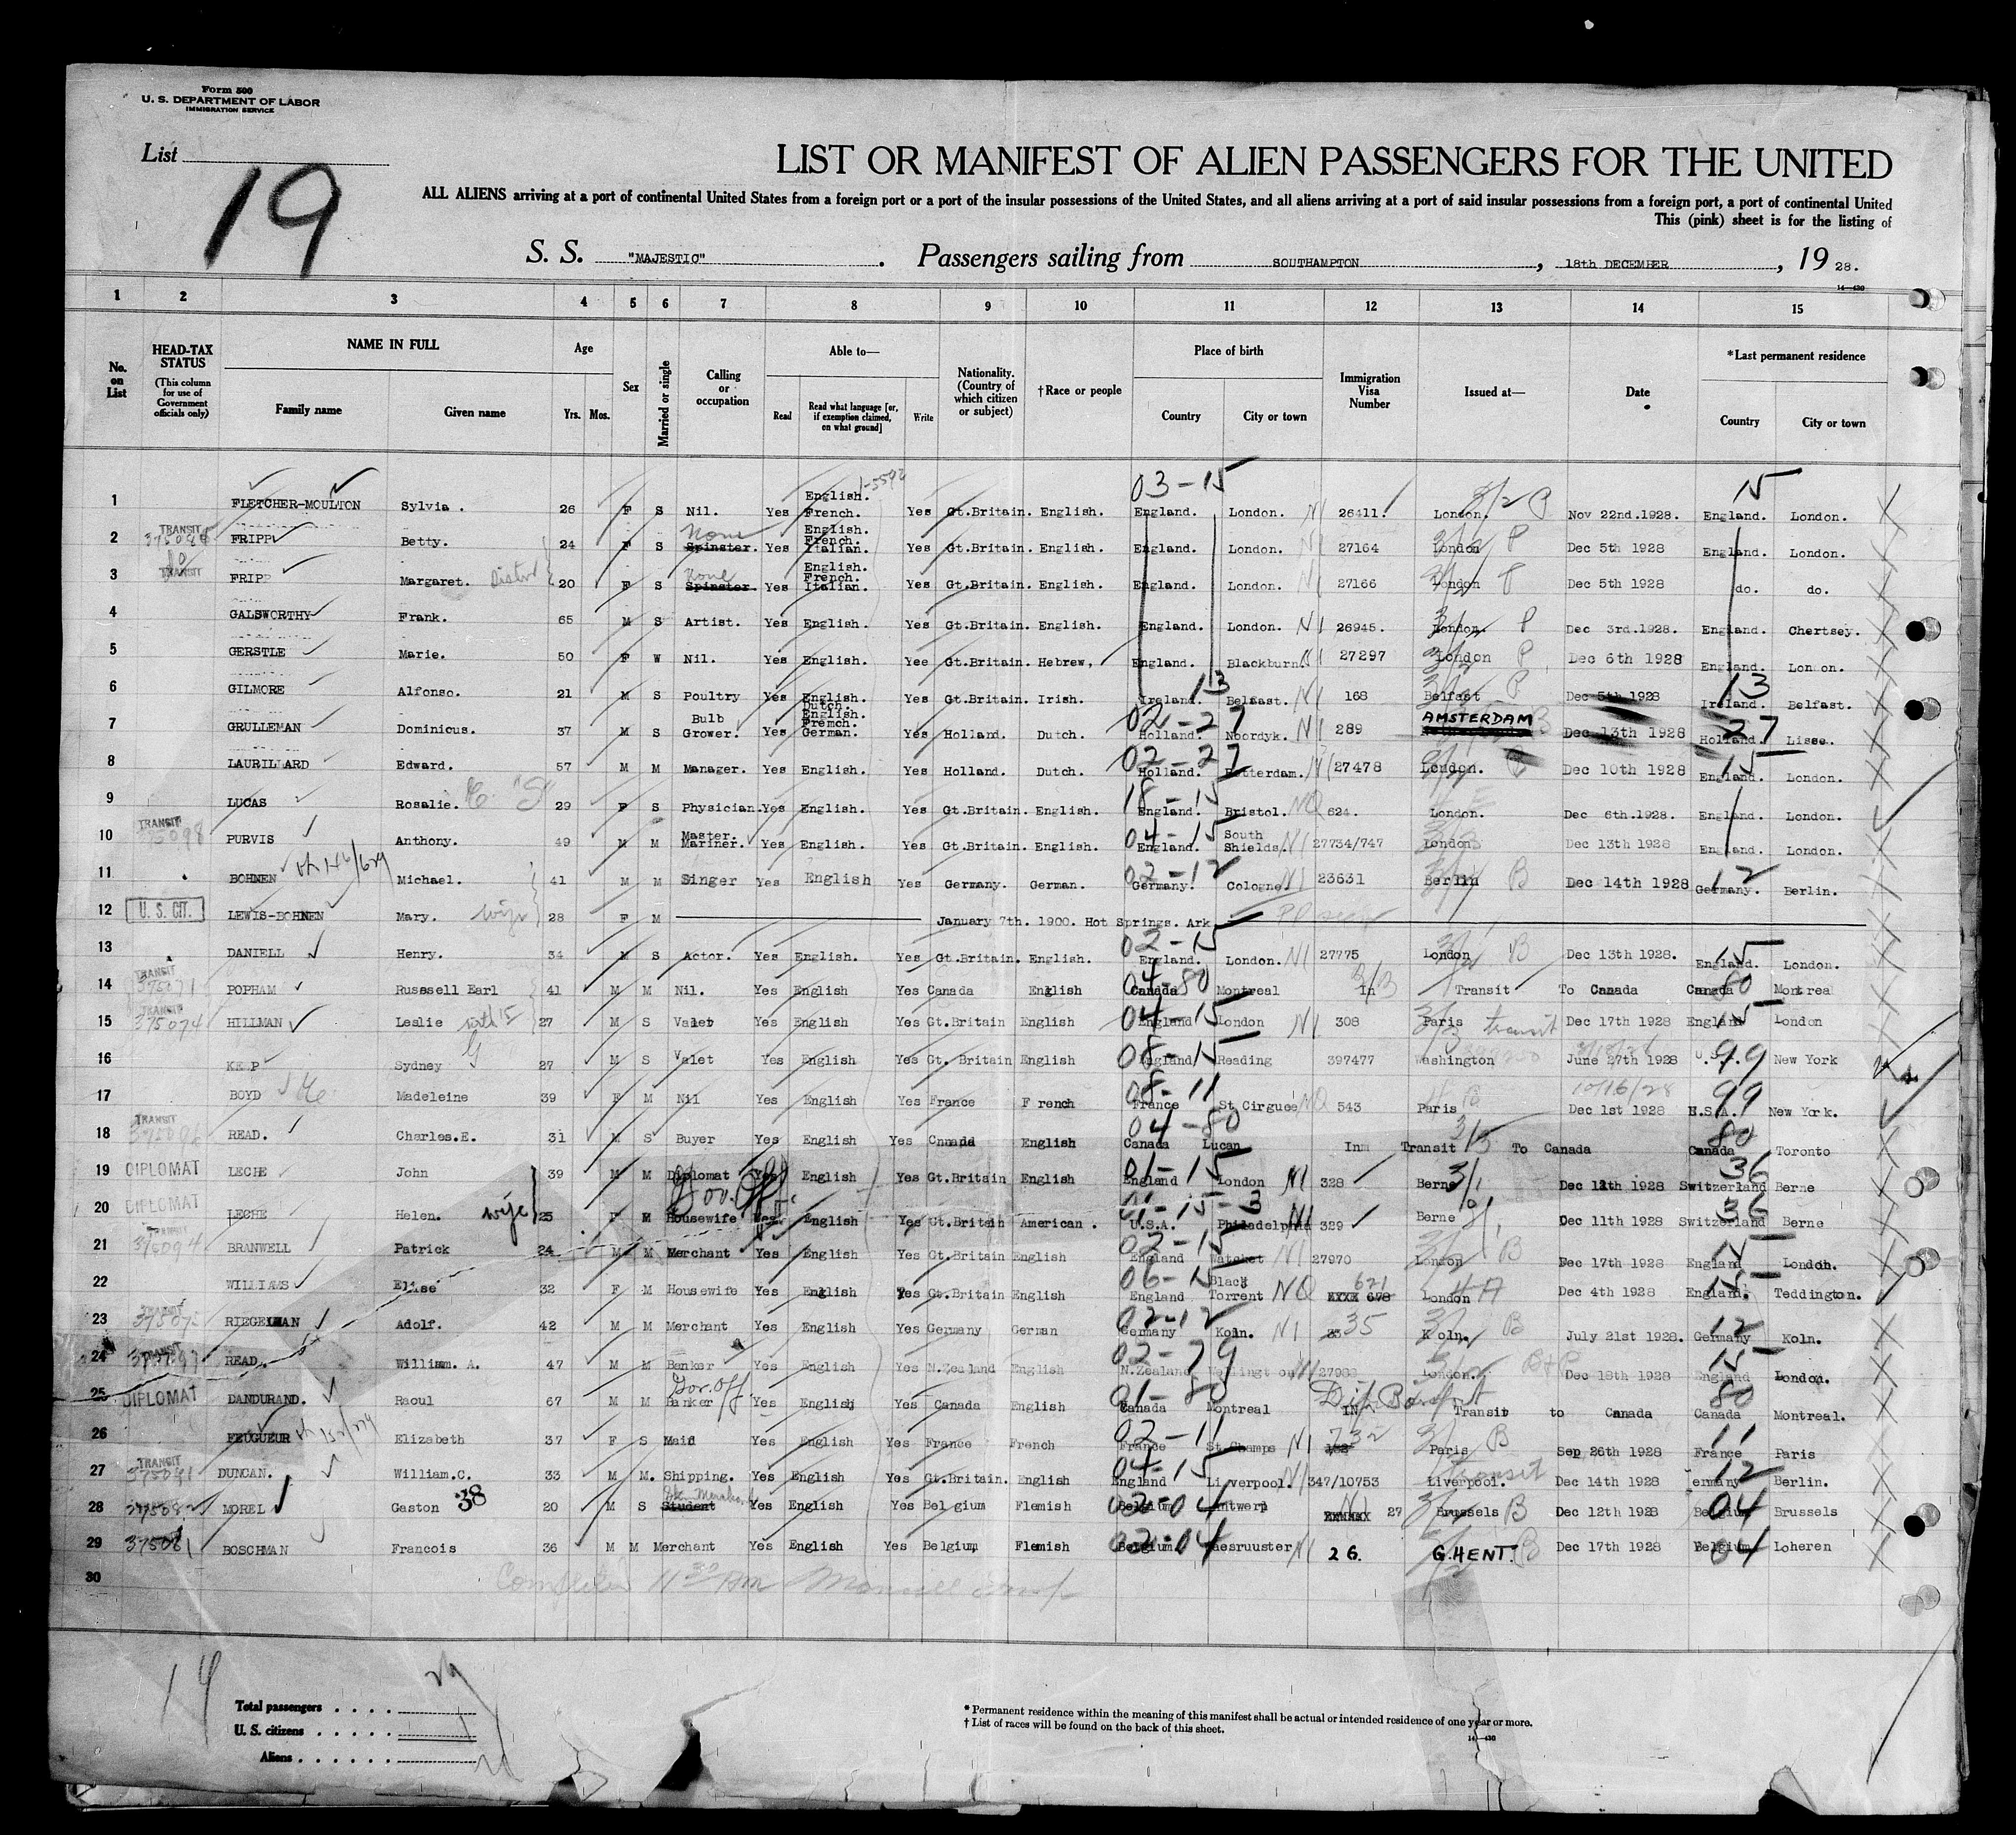 Form 500
U. S. DEPARTMENT OF LABOR
IMMIGRATION SERVICE
List
19
LIST OR MANIFEST OF ALIEN PASSENGERS FOR THE UNITED
ALL ALIENS arriving at a port of continental United States from a foreign port or a port of the insular possessions of the United States, and all aliens arriving at a port of said insular possessions from a foreign port, a port of continental United
This (pink) sheet is for the listing of
S. S. "MAJESTIC". Passengers sailing from SOUTHAMPTON, 18th DECEMBER, 19 28.
14—430
1 2 3 4 5 6 7 8 9 10 11 12 13 14 15
No. on List
HEAD-TAX STATUS (This column for use of Government officials only)
NAME IN FULL
Family name Given name
Age
Yrs. Mos.
Sex
Married or single
Calling or occupation
Able to—
Read Read what language [or, if exemption claimed, on what ground] Write
Nationality. (Country of which citizen or subject)
† Race or people
Place of birth
Country City or town
Immigration Visa Number
Issued at—
Date
*Last permanent residence
Country City or town
1 FLETCHER-MOULTON Sylvia. 26 F S Nil. Yes English. French. Yes Gt.Britain. English. 03-15 England. London. NI 26411. London. Nov 22nd.1928. 15 England. London.
2 TRANSIT FRIPP Betty. 24 F S None Spinster. Yes English. French. Italian. Yes Gt.Britain. English. England. London. NI 27164 London P Dec 5th 1928 England. London.
3 TRANSIT FRIPP Margaret. 20 F S None Spinster Yes English. French. Italian. Yes Gt.Britain. English. England. London. NI 27166 London P Dec 5th 1928 do. do.
4 GALSWORTHY Frank. 65 M S Artist. Yes English. Yes Gt.Britain. English. England. London. NI 26945. London. P Dec 3rd.1928. England. Chertsey.
5 GERSTLE Marie. 50 F W Nil. Yes English. Yee Gt.Britain. Hebrew, England. Blackburn. NI 27297 London P Dec 6th 1928 England. London.
6 GILMORE Alfonso. 21 M S Poultry Yes English. Yes Gt.Britain. Irish. 13 Ireland. Belfast. NI 168 Belfast P Dec 5th 1928 13 Ireland. Belfast.
7 GRULLEMAN Dominicus. 37 M S Bulb Grower. Yes Dutch. English. French. German. Yes Holland. Dutch. 02-27 Holland. Noordyk. NI 289 AMSTERDAM B Dec 13th 1928 27 Holland. Lisse.
8 LAURILLARD Edward. 57 M M Manager. Yes English. Yes Holland. Dutch. 02-27 Holland. Rotterdam. NI 27478 London. Dec 10th 1928 15 England. London.
9 LUCAS Rosalie. 29 F S Physician. Yes English. Yes Gt.Britain. English. 18-15 England. Bristol. NQ 624. London. Dec 6th.1928. England. London.
10 TRANSIT PURVIS Anthony. 49 M M Master. Mariner. Yes English. Yes Gt.Britain. English. 04-15 England. South Shields. NI 27734/747 London Dec 13th 1928 England. London.
11 BOHNEN Michael. 41 M M Singer Yes English Yes Germany. German. 02-12 Germany. Cologne. NI 23631 Berlin B Dec 14th 1928 12 Germany. Berlin.
12 U. S. CIT. LEWIS-BOHNEN Mary. wife 28 F M January 7th. 1900. Hot Springs. Ark
13 DANIELL Henry. 34 M S Actor. Yes English. Yes Gt.Britain. English. 02-15 England. London. NI 27775 London B Dec 13th 1928. 15 England. London.
14 TRANSIT 375071 POPHAM Russell Earl 41 M M Nil. Yes English Yes Canada English 04-80 Canada Montreal In Transit To Canada 80 Canada Montreal
15 TRANSIT 375074 HILLMAN Leslie with 15 27 M S Valet Yes English Yes Gt.Britain English 04-15 England London NI 308 Paris transit Dec 17th 1928 15 England London
16 KEEP Sydney 27 M S Valet Yes English Yes Gt. Britain English 08-15 England Reading 397477 Washington June 27th 1928 U.S.A. 99 New York
17 BOYD Madeleine 39 F M Nil Yes English Yes France French 08-11 France St Cirguee NQ 543 Paris 10/16/28 Dec 1st 1928 99 U.S.A. New York.
18 TRANSIT READ. Charles.E. 31 M S Buyer Yes English Yes Cnmada English 04-80 Canada Lucan Inm Transit To Canada 80 Canada Toronto
19 DIPLOMAT LECHE John 39 M M Diplomat Yes English Yes Gt.Britain English 01-15 England London NI 328 Berne 3/1 Dec 12th 1928 36 Switzerland Berne
Gov. Off.
20 DIPLOMAT LECHE Helen. wife 25 F M Housewife Yes English Yes Gt.Britain American. 01-15-3 U.S.A. Philadelphia NI 329 Berne Dec 11th 1928 36 Switzerland Berne
21 TRANSIT 375094 BRANWELL Patrick 24 M M Merchant Yes English Yes Gt.Britain English 02-15 England Watchet NI 27970 London B Dec 17th 1928 15 England London.
22 WILLIAMS Elise 32 F M Housewife Yes English Yes Gt.Britain English 06-15 England Black Torrent NQ 621 XXXX 678 London Dec 4th 1928 15 England. Teddington.
23 TRANSIT RIEGELMAN Adolf. 42 M M Merchant Yes English Yes Germany German 02-12 Germany Koln. NI 35 Koln. B July 21st 1928. 12 Germany Koln.
24 READ. William. A. 47 M M Banker Yes English Yes N.Zealand English 02-79 N.Zealand NI London. Dec 18th 1928 15 England London.
25 DIPLOMAT DANDURAND. Raoul 67 M M Gov. Off. Banker Yes English Yes Canada English 01-80 Canada Montreal IN Transit to Canada 80 Canada Montreal.
26 FEUGUEUR Elizabeth 37 F S Maid Yes English Yes France French 02-11 France NI 732 Paris B Sep 26th 1928 11 France Paris
27 TRANSIT 375091 DUNCAN. William.C. 33 M M. Shipping. Yes English Yes Gt.Britain. English 04-15 England Liverpool. NI 347/10753 Liverpool. transit Dec 14th 1928 12 ermany Berlin.
28 MOREL Gaston 38 20 M S Student Yes English Yes Belgium Flemish 02-04 Belgium Antwerp NI 27 Brussels B Dec 12th 1928 04 Belgium Brussels
29 375081 BOSCHMAN Francois 36 M M Merchant Yes English Yes Belgium Flemish 02-04 Belgium NI 26. GHENT. B Dec 17th 1928 04 Belgium Loheren
30
Total passengers
U. S. citizens
Aliens
* Permanent residence within the meaning of this manifest shall be actual or intended residence of one year or more.
† List of races will be found on the back of this sheet.
14—430